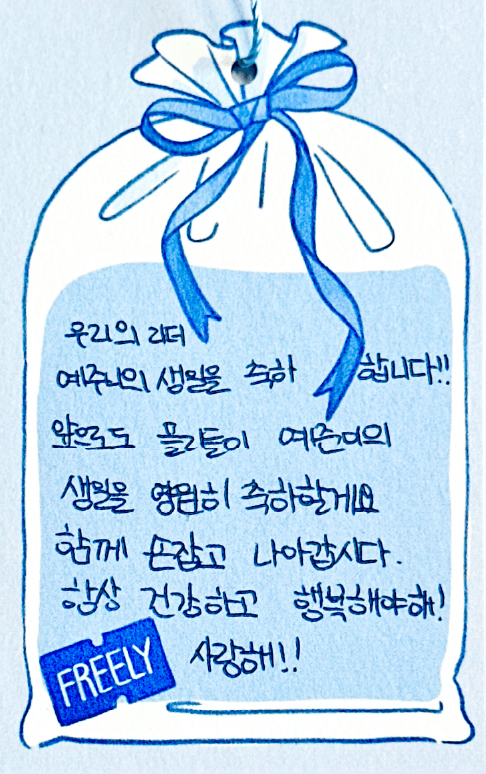 우리의 리더
예주니의 생일을 축하 합니다!!
앞으로도 플리들이 예준이의
생일을 영원히 축하할게요
함께 손잡고 나아갑시다.
항상 건강하고 행복해야해!
사랑해!!
FREELY